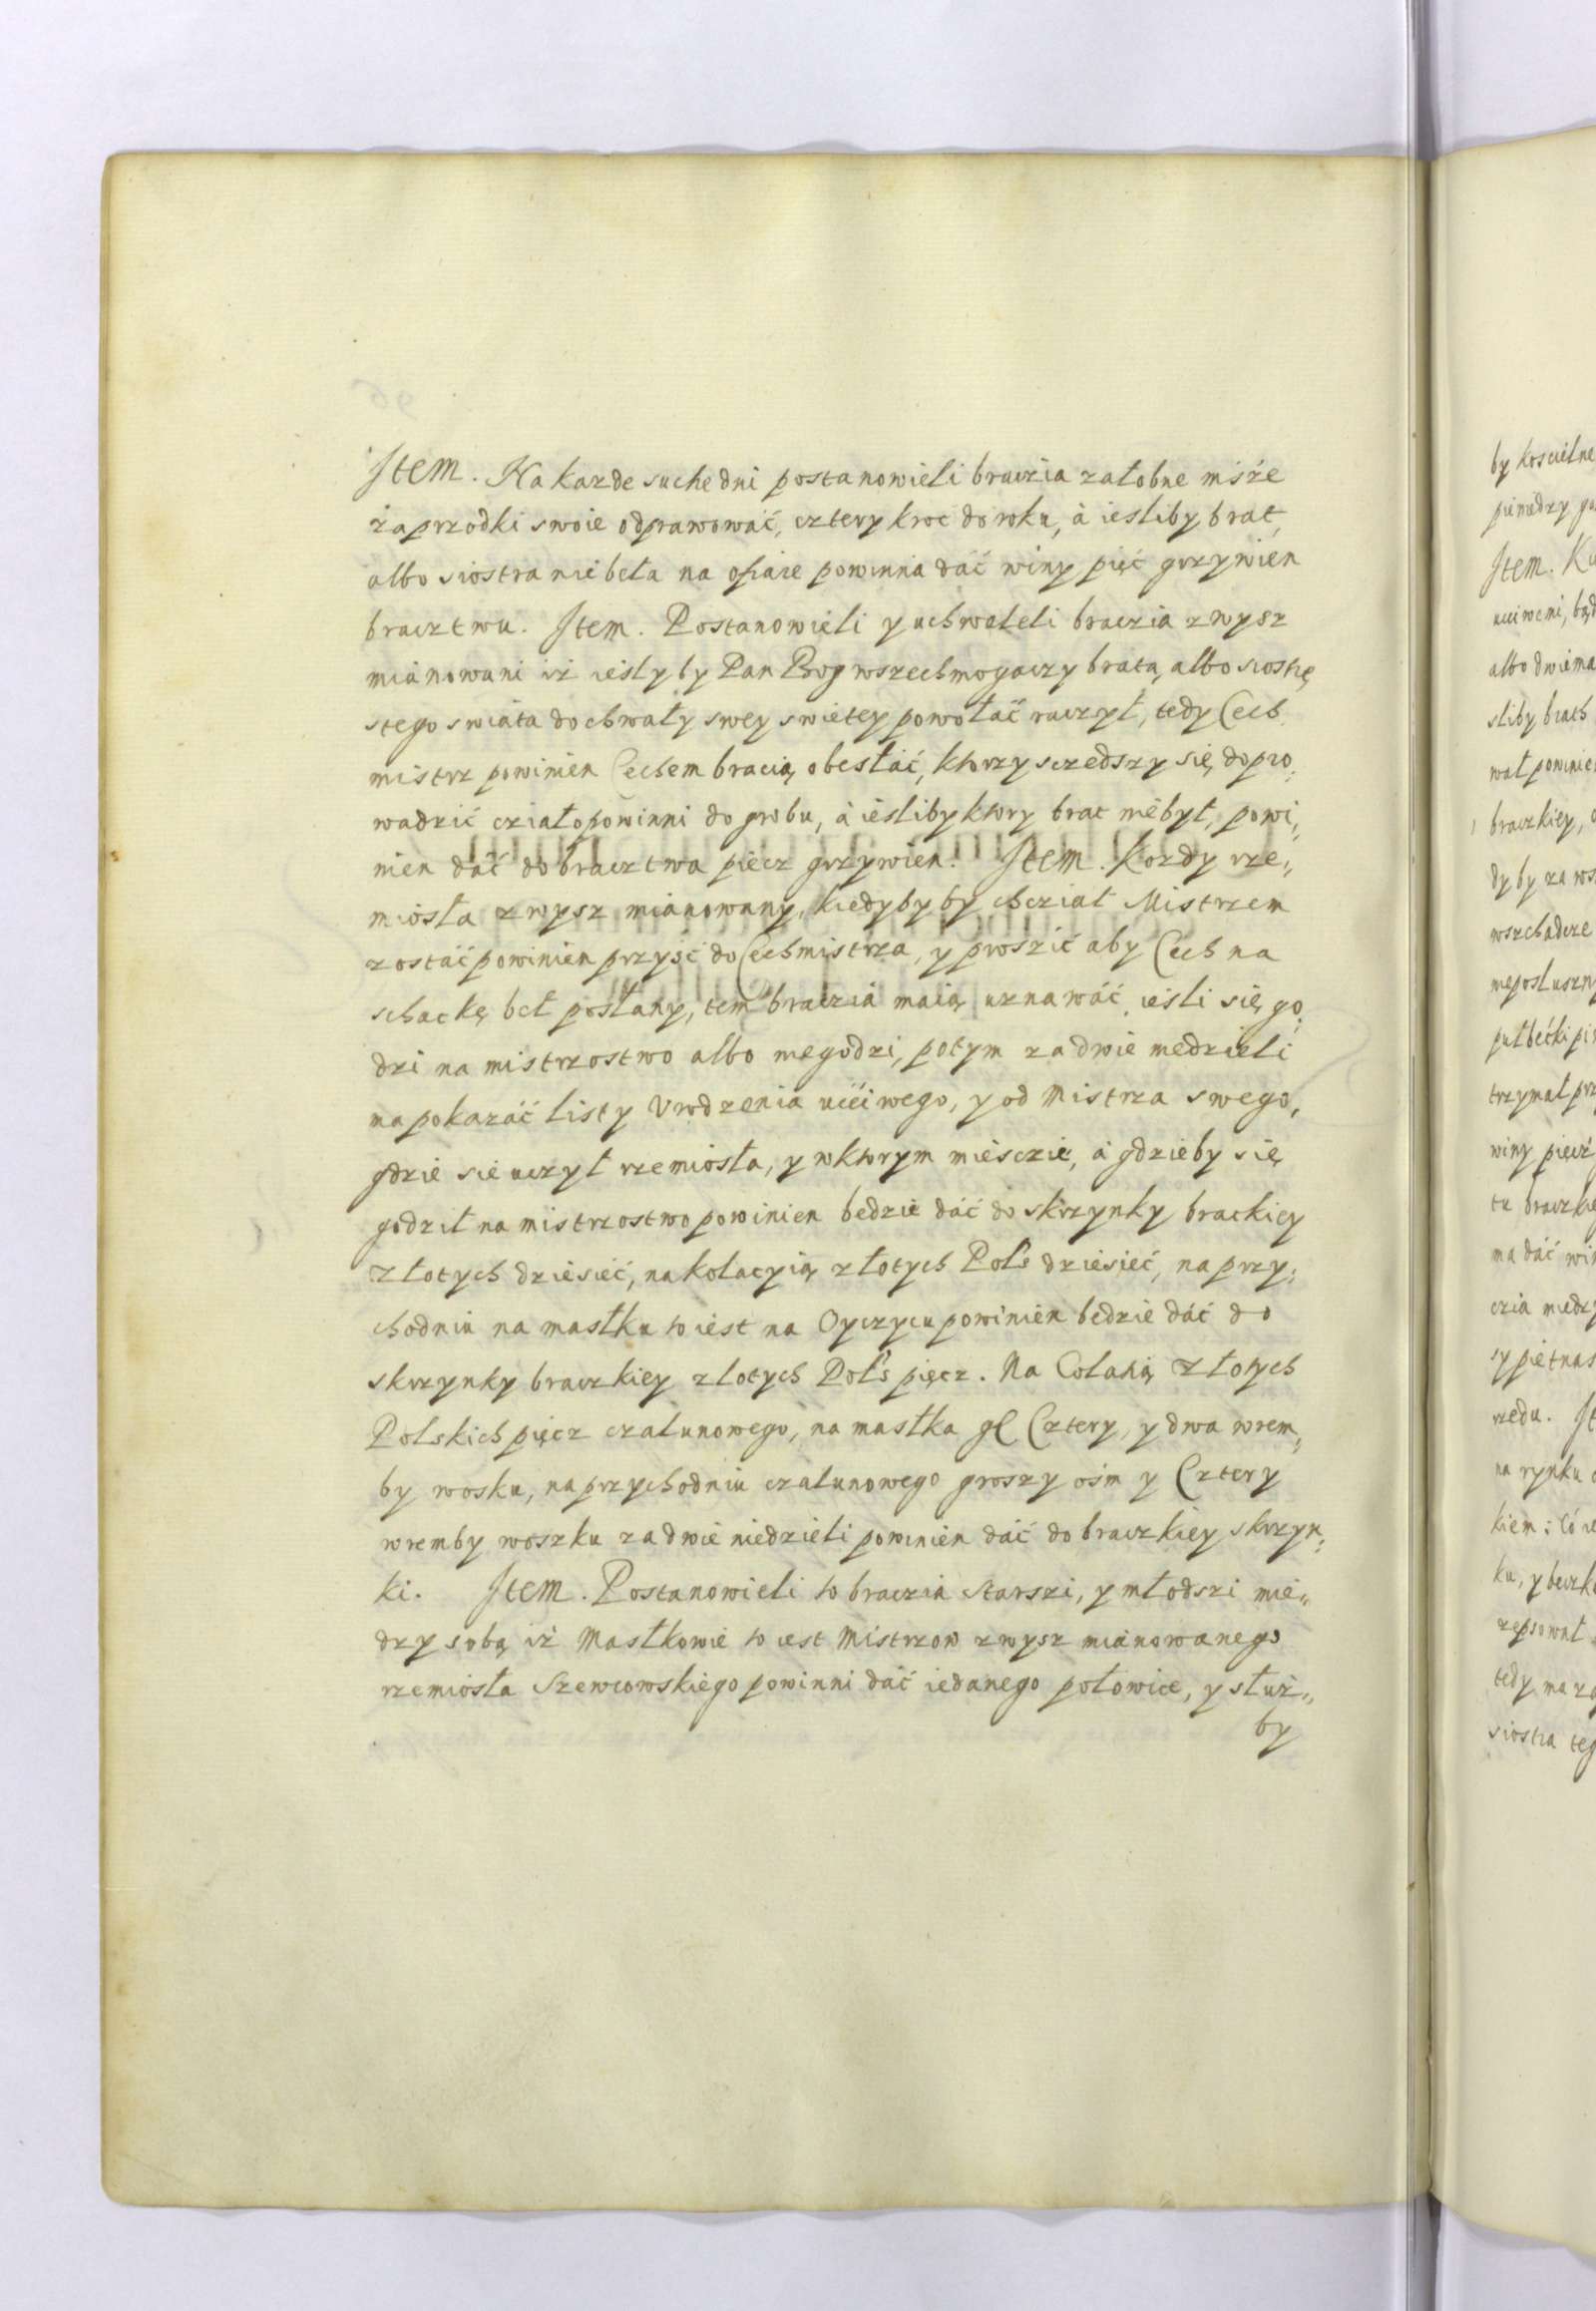 Item. Na kazde suche dni postanowieli braczia załobne mśźe
za przodki swoie odprawować, cztery kroc do roku, à iesliby brat,
albo siostra nie beła na ofiaże powinna dáć winy pięć grzywien
bracztwu. Item. Postanowieli y uchweleli braczia zwysz
mianowani iż iesly by Pan Bog wszechmogaczy brata, albo siostrę
stego swiáta do chwały swey swietey powołáć raczył, tedy Cech
mistrz powinien Cechem bracią obesłáć, ktorzy szedszy się dopro,
wadzić cziało powinni do grobu, à iesliby ktory brat niebył, powi,
nien dáć do bractwa piecz grzywien. Item. Kozdy rze,,
miosła zwysz mianowany, kiedyby by chcział Mistrzem
zostáć powinien przyść do Cechmistrza, y proszić aby Cech na
schackę beł posłany, tem braczia maią uznawáć, iesli się go,
dzi na mistrzostwo albo niegodzi, potym za dwie niedzieli
ma pokazáć listy Vrodzenia ućciwego, y od Mistrza swego,
gdzie sie uczył rzemiosła, y wktorym miesczie, à gdzieby się
godzil na mistrzostwo powinien bedzie dáć do skrzynky brackiey
złotych dziesieć, na kolacyią złotych Pols dziesieć, na przy,
chodniu na mastku to iest na Oyczycu powinien bedzie dáć do
skrzynky braczkiey złotych Pols pięcz. Na Colatią złotych
Polskich pięcz czalunowego, na mastka gl Cztery, y dwa wrem,
by wosku, na przychodniu czalunowego groszy ośm y Cztery
wremby woszku za dwie niedzieli powinien dáć do braczkiey skrzyn,
ki. Item. Postanowieli to braczia Starszi, y młodszi mie,,
dzy sobą iż Mastkowie to iest Mistrzow zwysz mianowanego
rzemiosła Szewcowskiego powinni dáć iedanego połowice, y służ,,
by
by koscielne
pieniedzy
Item.
uciwemi,
albo dwiema
sliby brath
wał powinien
braczkiey,
dy by za
wszchadzce
nieposłuszny
trzymał
winy pięcz
tu braczkie
ma dáć
czia miedzy
sy piętnas
rzedu.
na rynku
kiem
ku, y beczk
zepsował
tedy ma
siostra teg